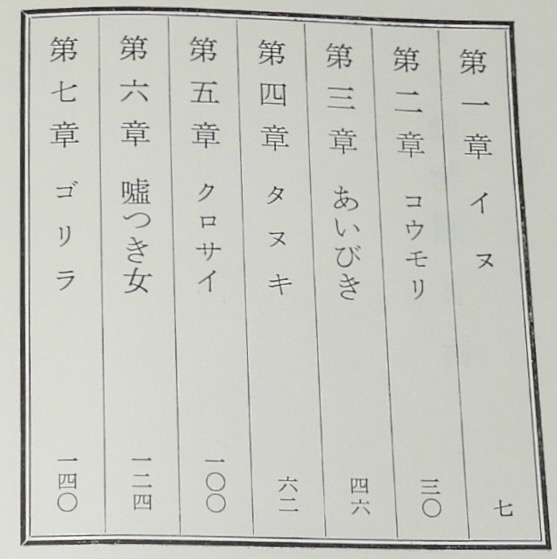 第一章 イヌ 七
第二章 コウモリ 三〇
第三章 あいびき 四六
第四章 タヌキ 六二
第五章 クロサイ 一〇〇
第六章 嘘つき女 一二四
第七章 ゴリラ 一四〇